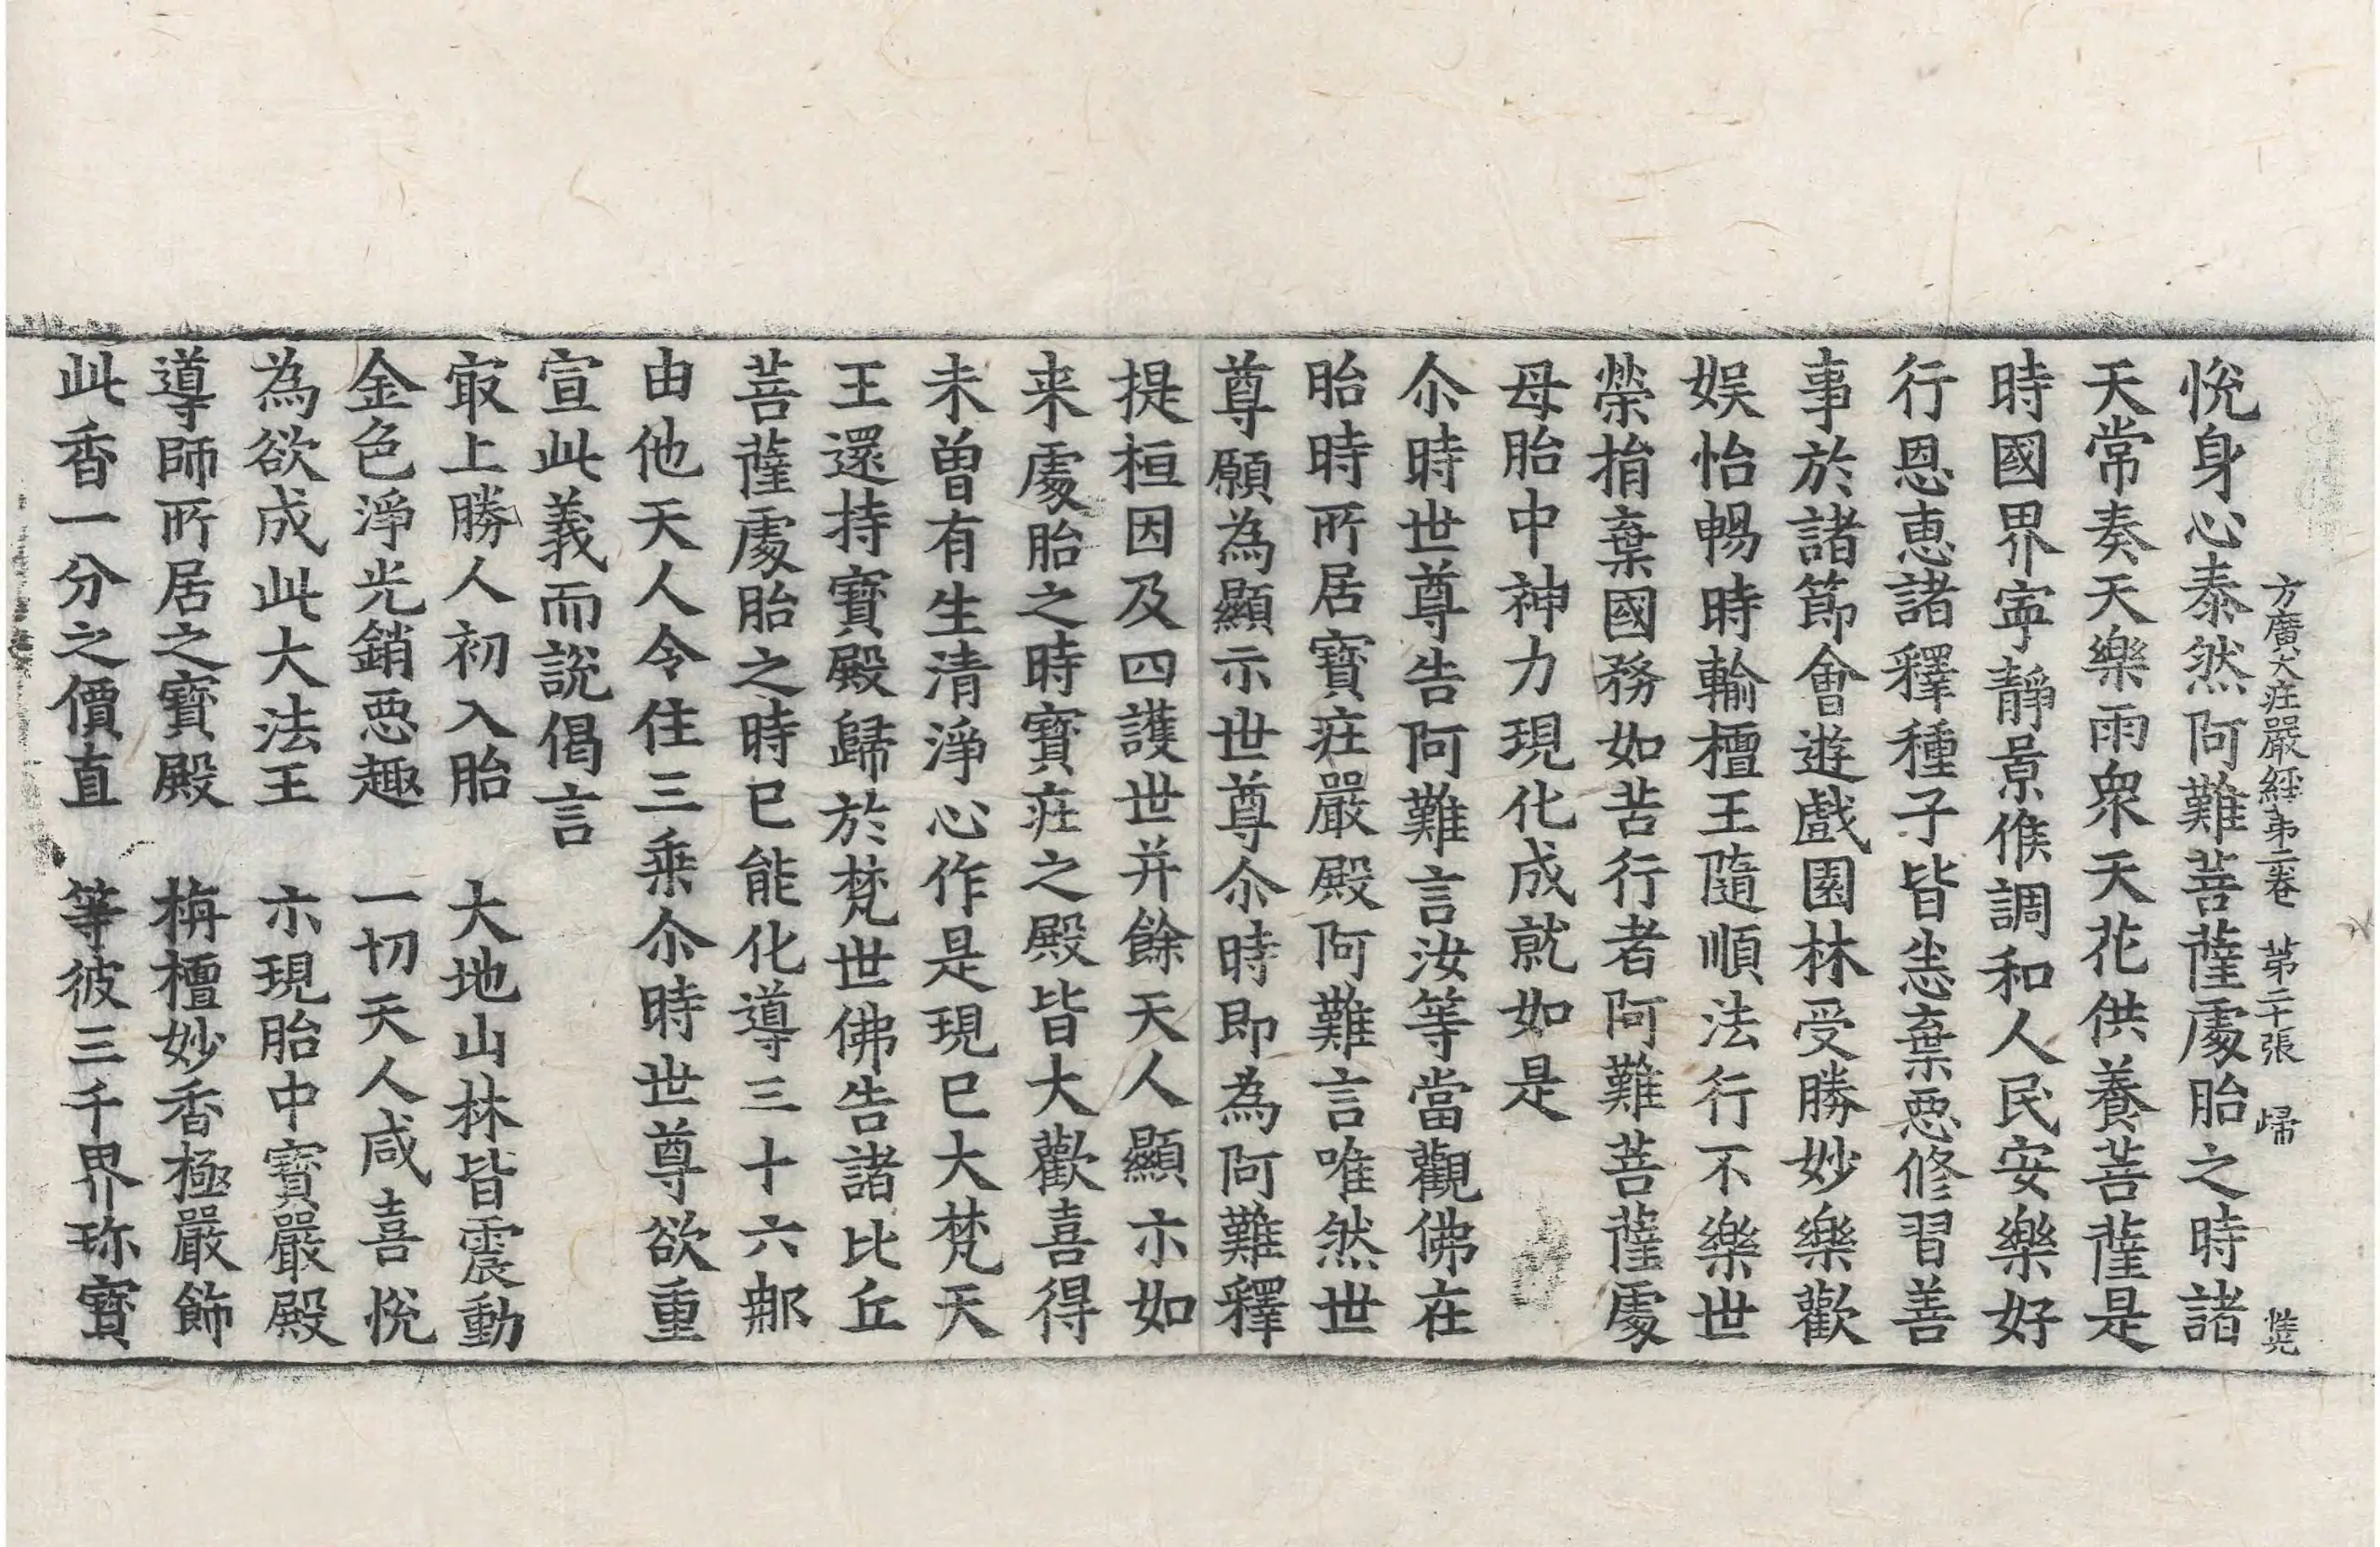 方廣大莊嚴經第二卷 第二十張 歸
悅身心泰然阿難菩薩處胎之時諸
天常奏天樂雨衆天花供養菩薩是
時國界寧靜景候調和人民安樂好
行恩惠諸釋種子皆悉棄惡修習善
事於諸節會遊戲園林受勝妙樂歡
娛怡暢時輸檀王隨順法行不樂世
榮捐棄國務如苦行者阿難菩薩處
母胎中神力現化成就如是
尒時世尊告阿難言汝等當觀佛在
胎時所居寶莊嚴殿阿難言唯然世
尊願為顯示世尊尒時即為阿難釋
提桓因及四護世并餘天人顯示如
来處胎之時寶莊之殿皆大歡喜得
未曾有生清淨心作是現已大梵天
王還持寶殿歸於梵世佛告諸比丘
菩薩處胎之時已能化導三十六那
由他天人令住三乘尒時世尊欲重
宣此義而說偈言
冣上勝人初入胎 大地山林皆震動
金色淨光銷惡趣 一切天人咸喜悅
為欲成此大法王 示現胎中寶嚴殿
導師所居之寶殿 栴檀妙香極嚴飾
此香一分之價直 等彼三千界珎寶